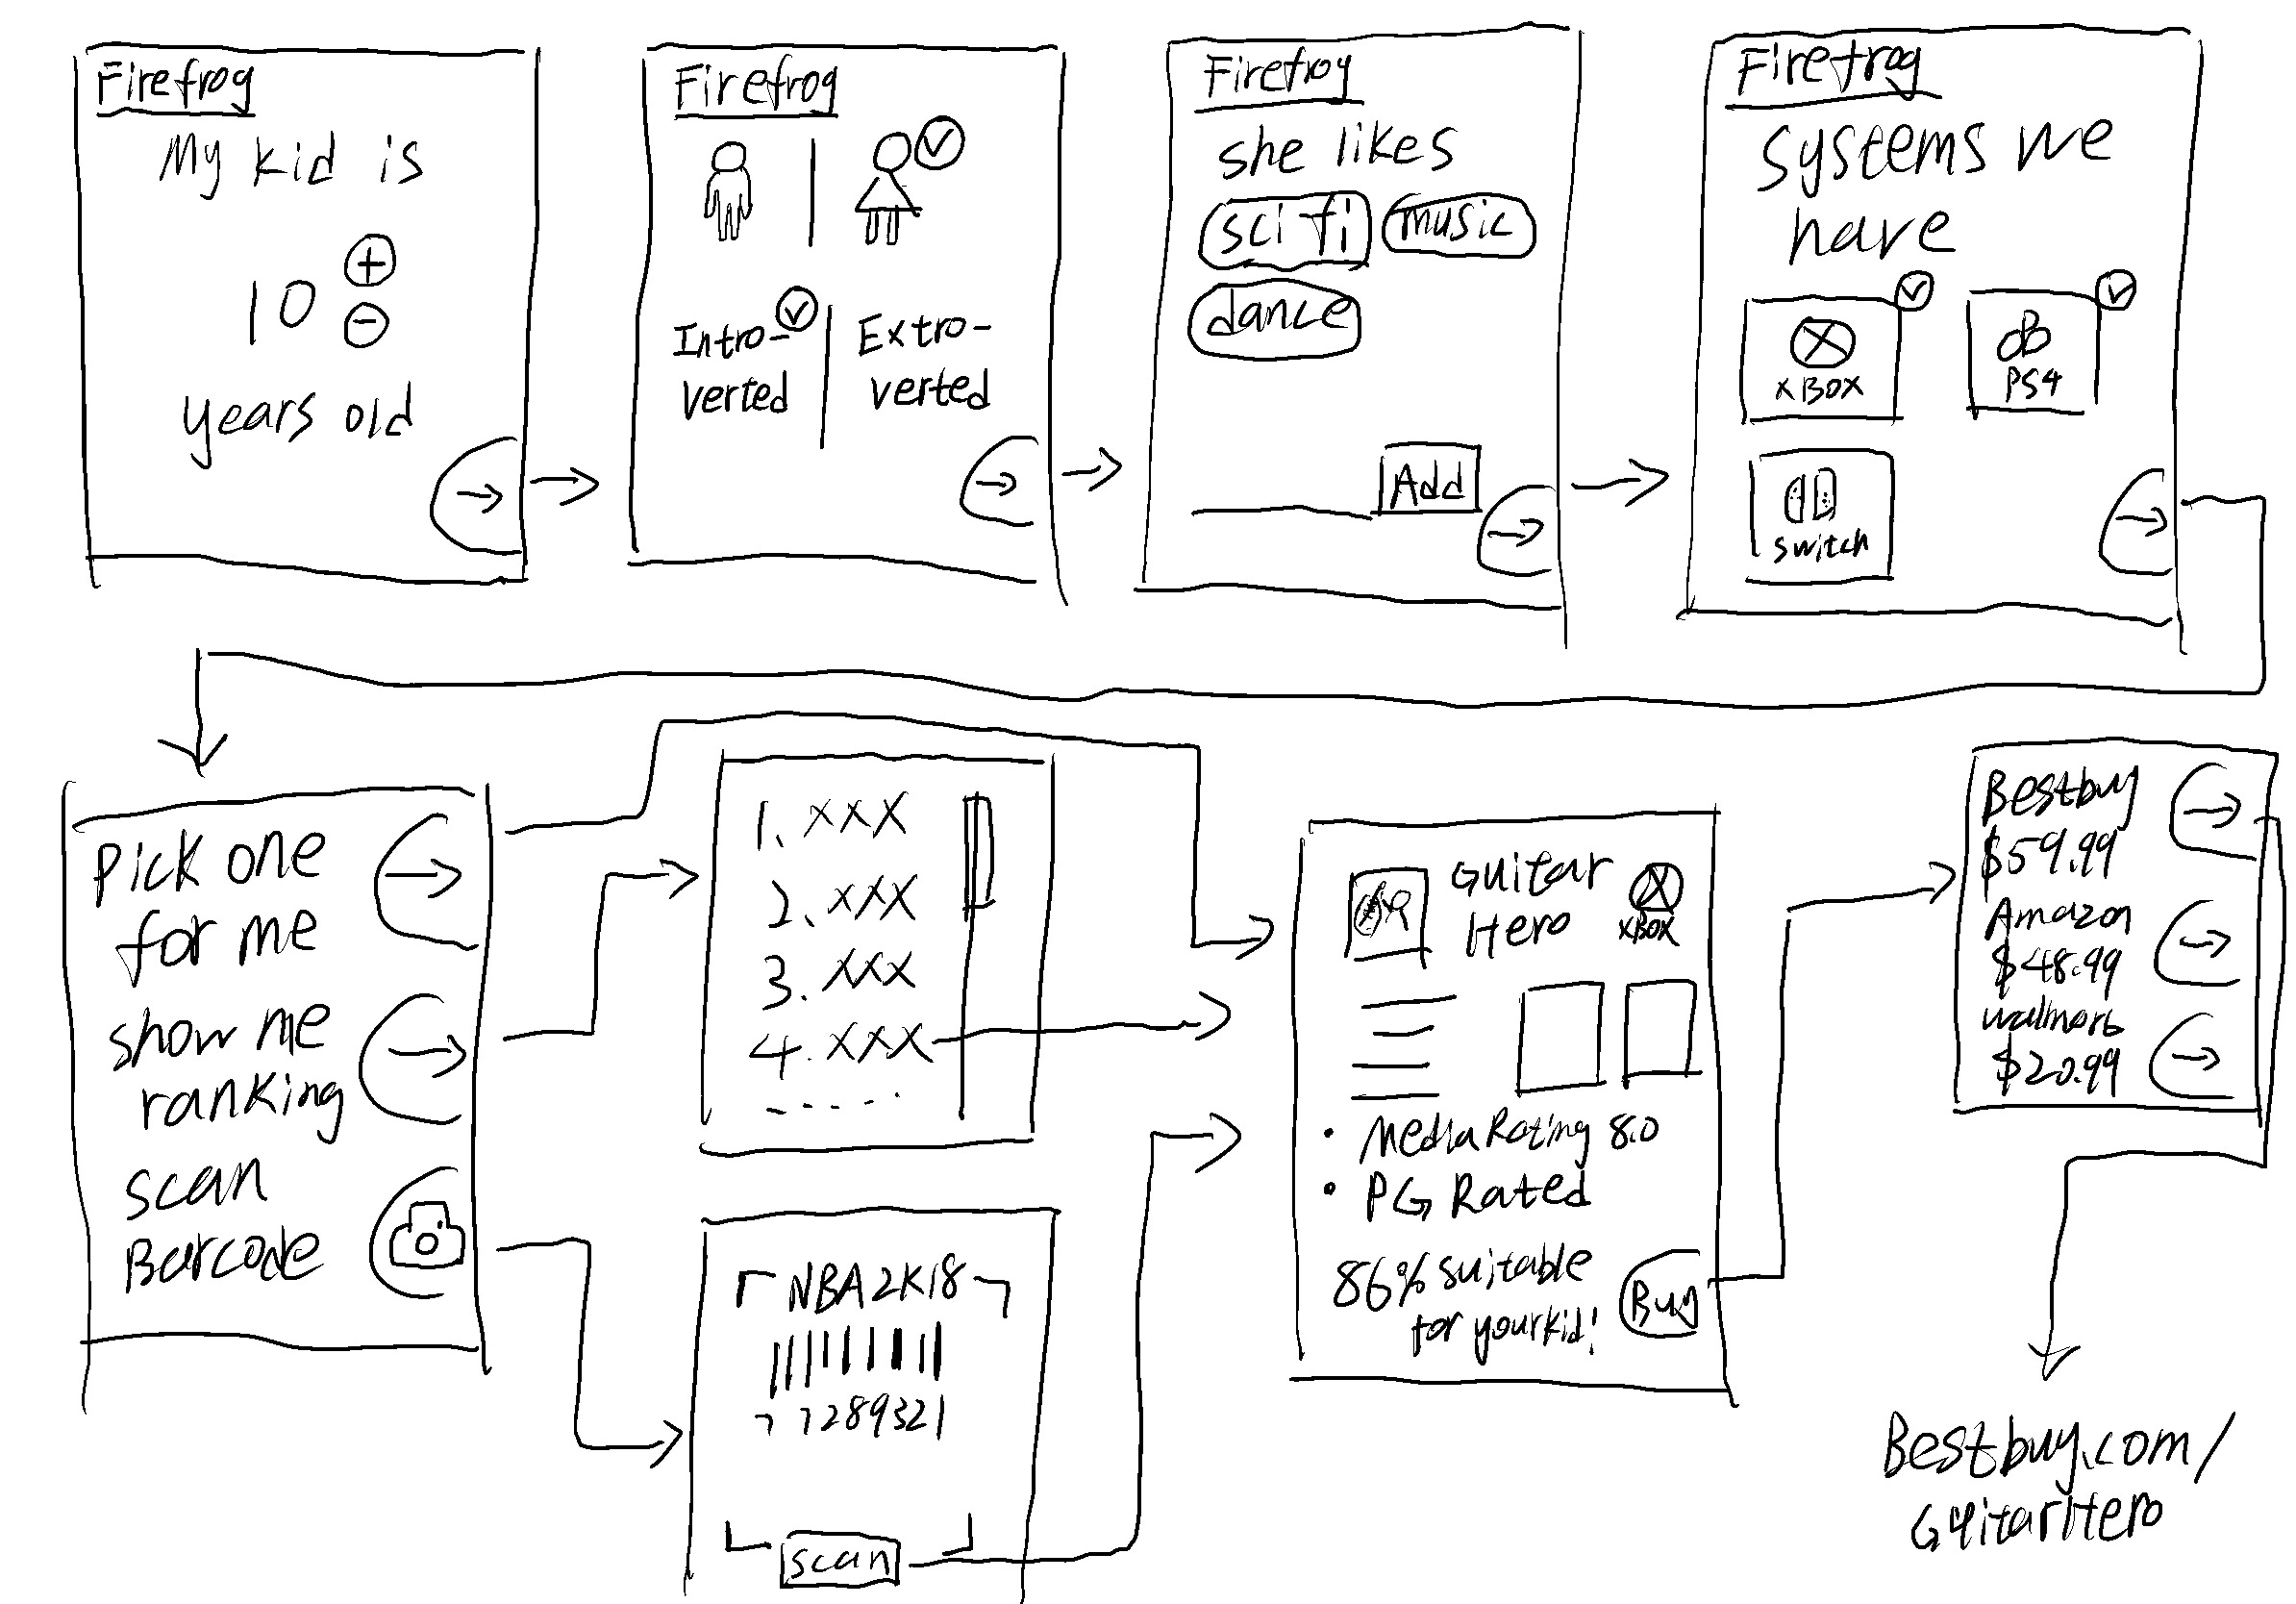 Firefrog
My kid is
10 + -
years old
→
Firefrog
Intro-
verted
Extro-
verted
→
Firefrog
she likes
sci fi music
dance
Add
→
Firefrog
systems we
have
XBOX
PS4
switch
→
Pick one
for me
show me
ranking
scan
Barcode
1. xxx
2. xxx
3. xxx
4. xxx
- - - - -
NBA2K18
77289321
scan
Guitar
Hero
XBOX
• Media Rating 8.0
• PG Rated
86% suitable
for your kid!
Buy
Bestbuy
$59.99
Amazon
$48.99
walmart
$20.99
Bestbuy.com/
GuitarHero